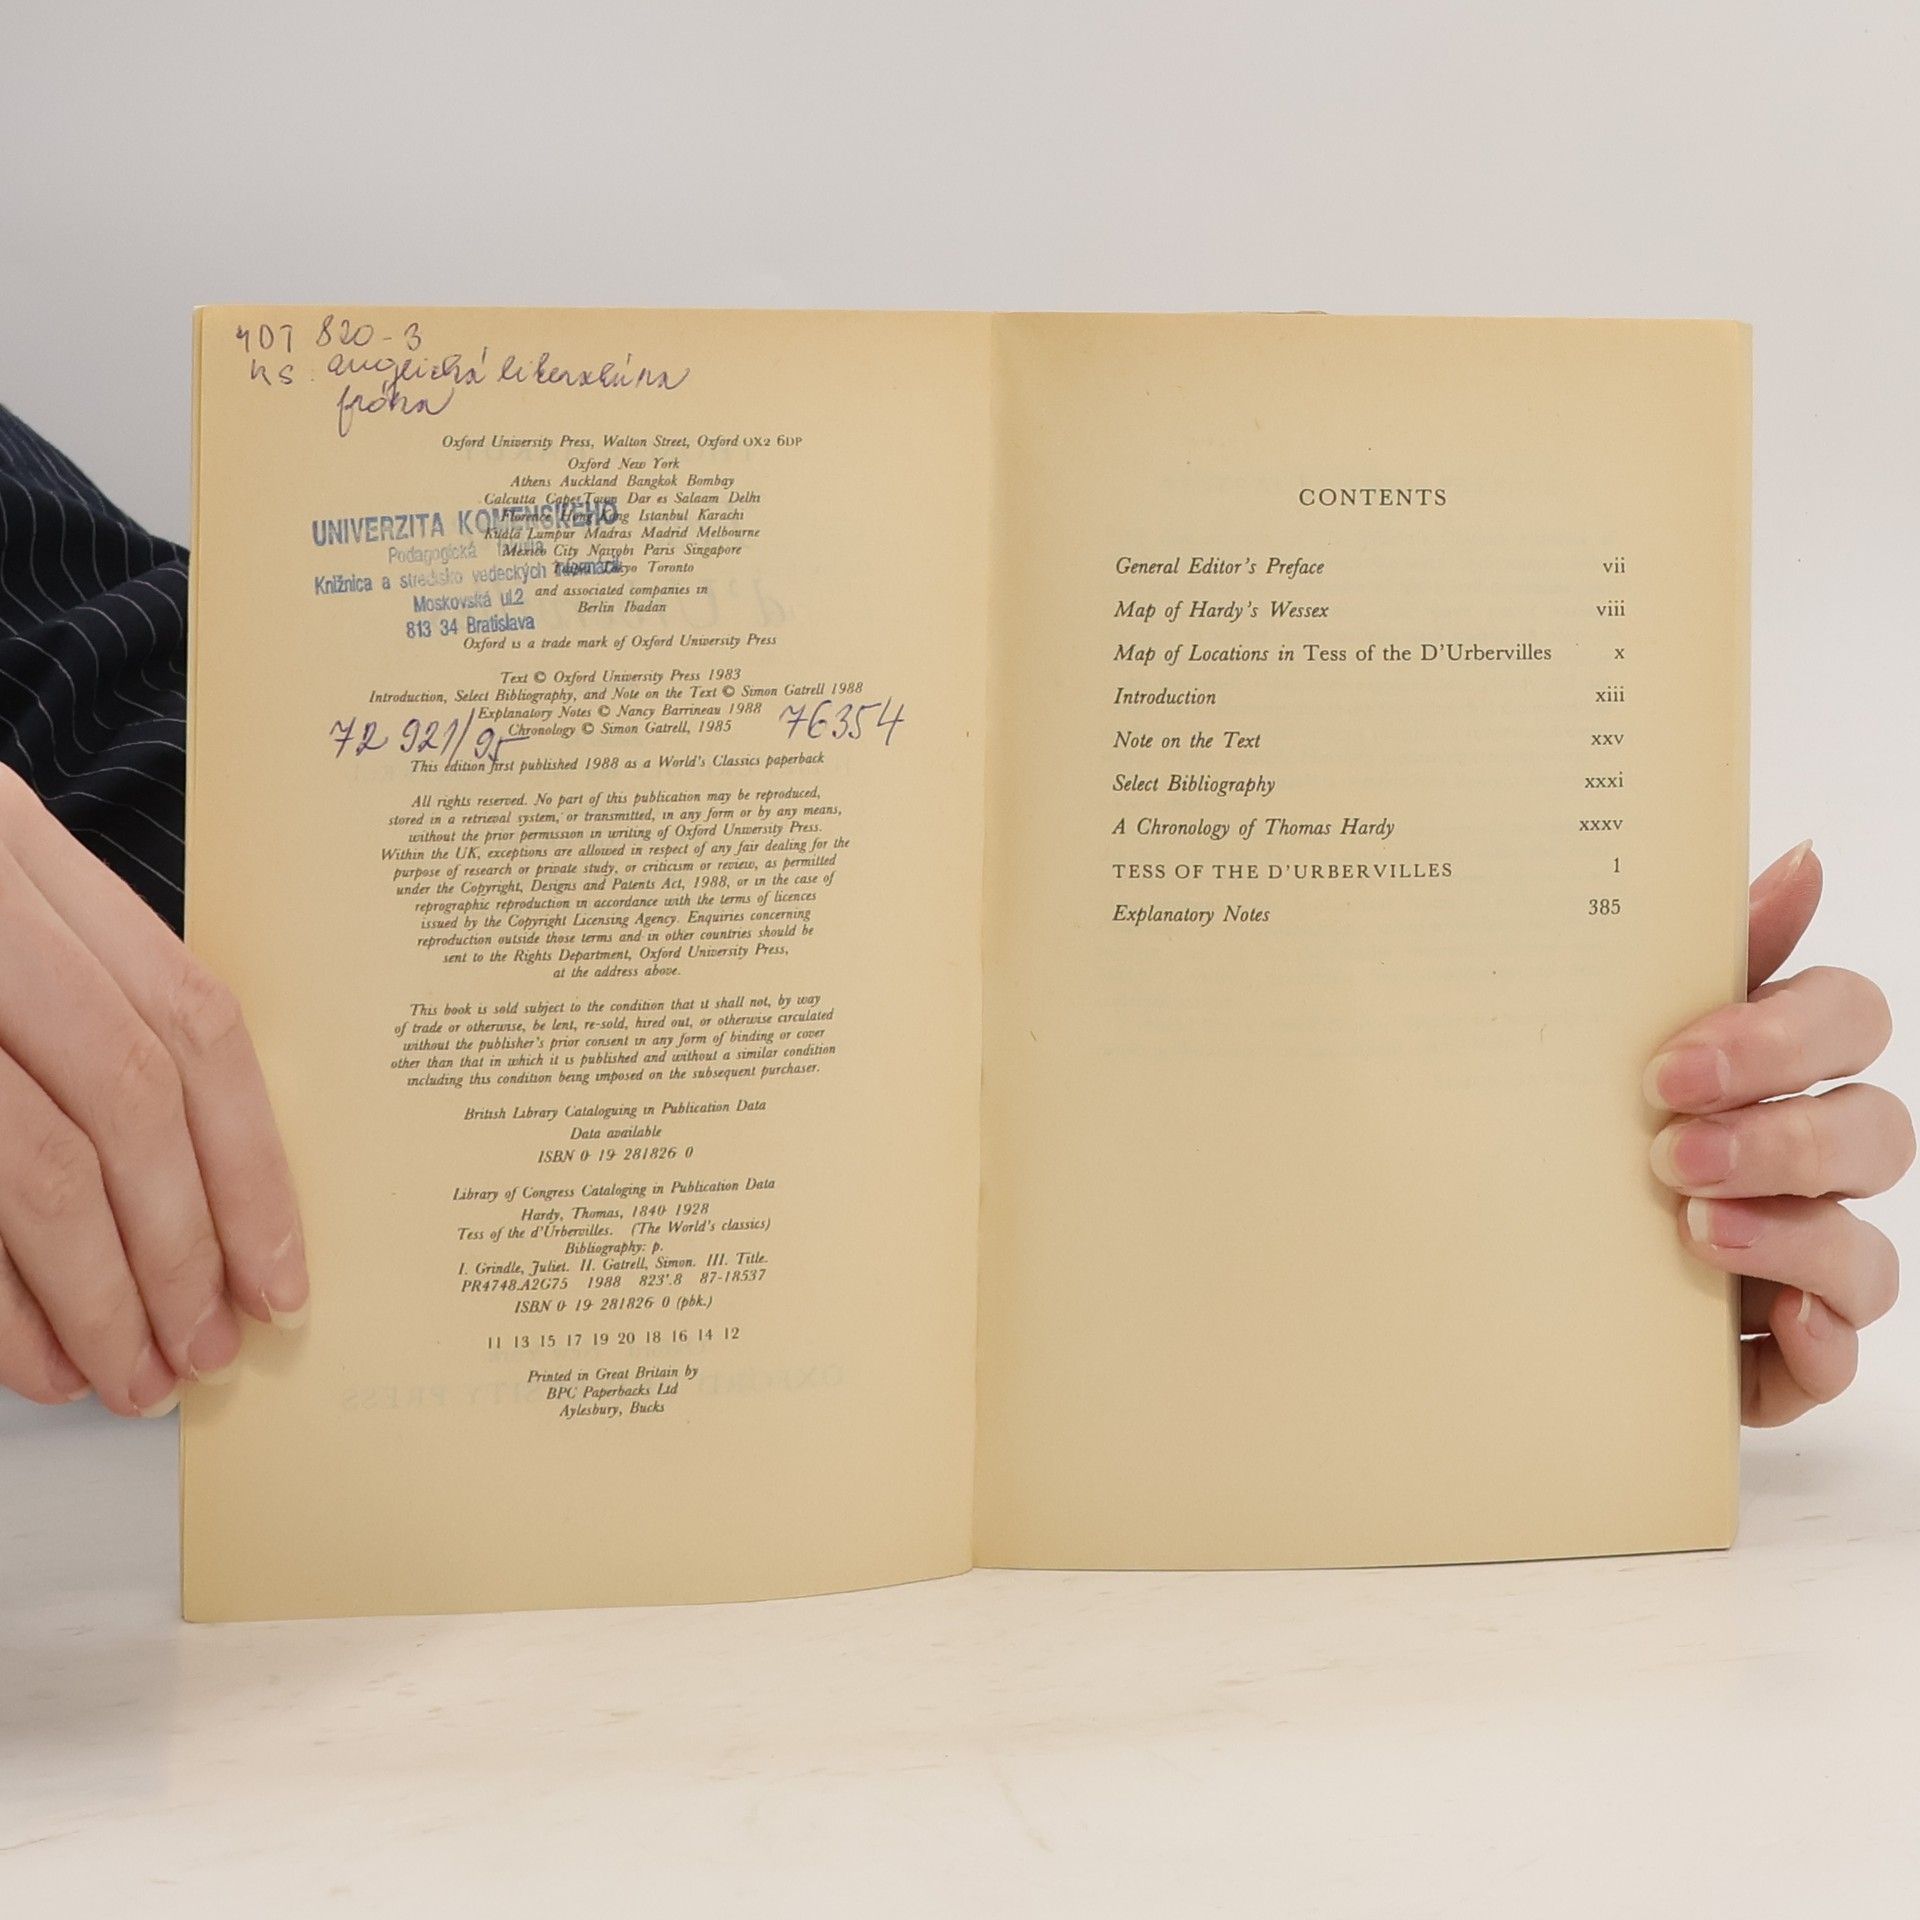 MDT 820-3
KS: anglická literatúra
próza
Oxford University Press, Walton Street, Oxford OX2 6DP
Oxford New York
Athens Auckland Bangkok Bombay
Calcutta Cape Town Dar es Salaam Delhi
Florence Hong Kong Istanbul Karachi
Kuala Lumpur Madras Madrid Melbourne
Mexico City Nairobi Paris Singapore
Taipei Tokyo Toronto
and associated companies in
Berlin Ibadan
UNIVERZITA KOMENSKÉHO
Pedagogická fakulta
Knižnica a stredisko vedeckých informácií
Moskovská ul.2
813 34 Bratislava
Oxford is a trade mark of Oxford University Press
Text © Oxford University Press 1983
Introduction, Select Bibliography, and Note on the Text © Simon Gatrell 1988
Explanatory Notes © Nancy Barrineau 1988
Chronology © Simon Gatrell, 1985
72 921/95
76354
This edition first published 1988 as a World's Classics paperback
All rights reserved. No part of this publication may be reproduced,
stored in a retrieval system, or transmitted, in any form or by any means,
without the prior permission in writing of Oxford University Press.
Within the UK, exceptions are allowed in respect of any fair dealing for the
purpose of research or private study, or criticism or review, as permitted
under the Copyright, Designs and Patents Act, 1988, or in the case of
reprographic reproduction in accordance with the terms of licences
issued by the Copyright Licensing Agency. Enquiries concerning
reproduction outside those terms and in other countries should be
sent to the Rights Department, Oxford University Press,
at the address above.
This book is sold subject to the condition that it shall not, by way
of trade or otherwise, be lent, re-sold, hired out, or otherwise circulated
without the publisher's prior consent in any form of binding or cover
other than that in which it is published and without a similar condition
including this condition being imposed on the subsequent purchaser.
British Library Cataloguing in Publication Data
Data available
ISBN 0-19-281826-0
Library of Congress Cataloging in Publication Data
Hardy, Thomas, 1840-1928
Tess of the d'Urbervilles. (The World's classics)
Bibliography: p.
I. Grindle, Juliet. II. Gatrell, Simon. III. Title.
PR4748.A2G75 1988 823'.8 87-18537
ISBN 0-19-281826-0 (pbk.)
11 13 15 17 19 20 18 16 14 12
Printed in Great Britain by
BPC Paperbacks Ltd
Aylesbury, Bucks
CONTENTS
General Editor's Preface vii
Map of Hardy's Wessex viii
Map of Locations in Tess of the D'Urbervilles x
Introduction xiii
Note on the Text xxv
Select Bibliography xxxi
A Chronology of Thomas Hardy xxxv
TESS OF THE D'URBERVILLES 1
Explanatory Notes 385